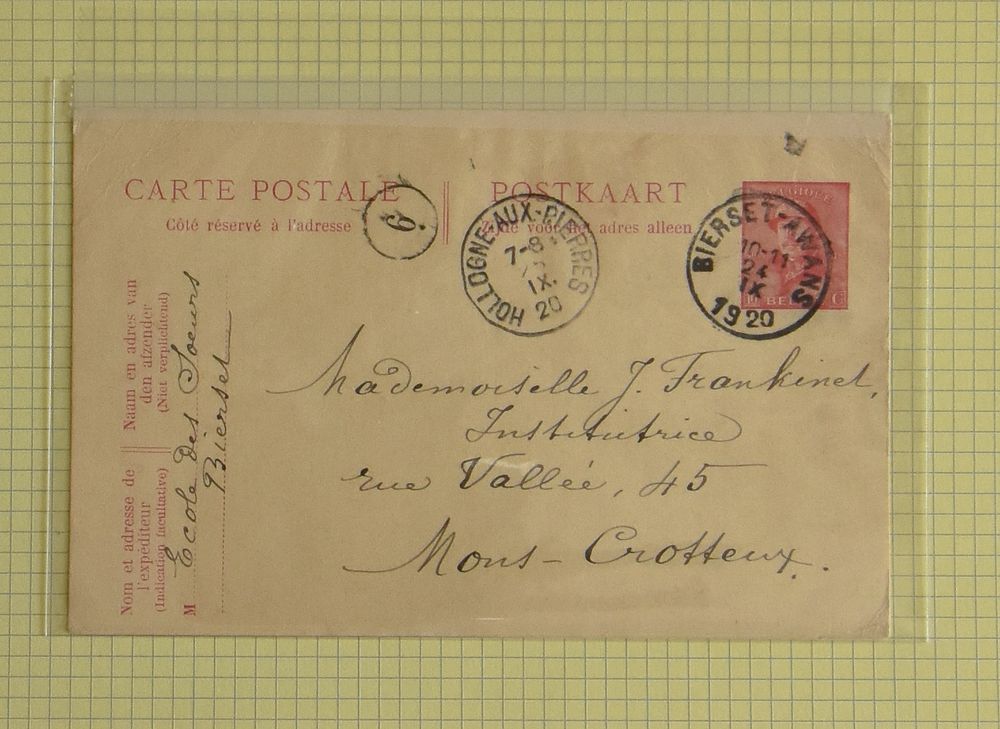 CARTE POSTALE
Côté réservé à l'adresse
POSTKAART
voor het adres alleen
6
HOLLOGNE-AUX-PIERRES
7-8
IX
20
BIERSET-AWANS
10-11
24
IX
1920
BELGIQUE
10 BEL C
Mademoiselle J. Frankinet,
Institutrice
rue Vallée, 45
Mons-Crotteux.
Naam en adres van
den afzender
(Niet verplichtend)
Nom et adresse de
l'expéditeur
(Indication facultative)
M Ecole des Soeurs
Bierset